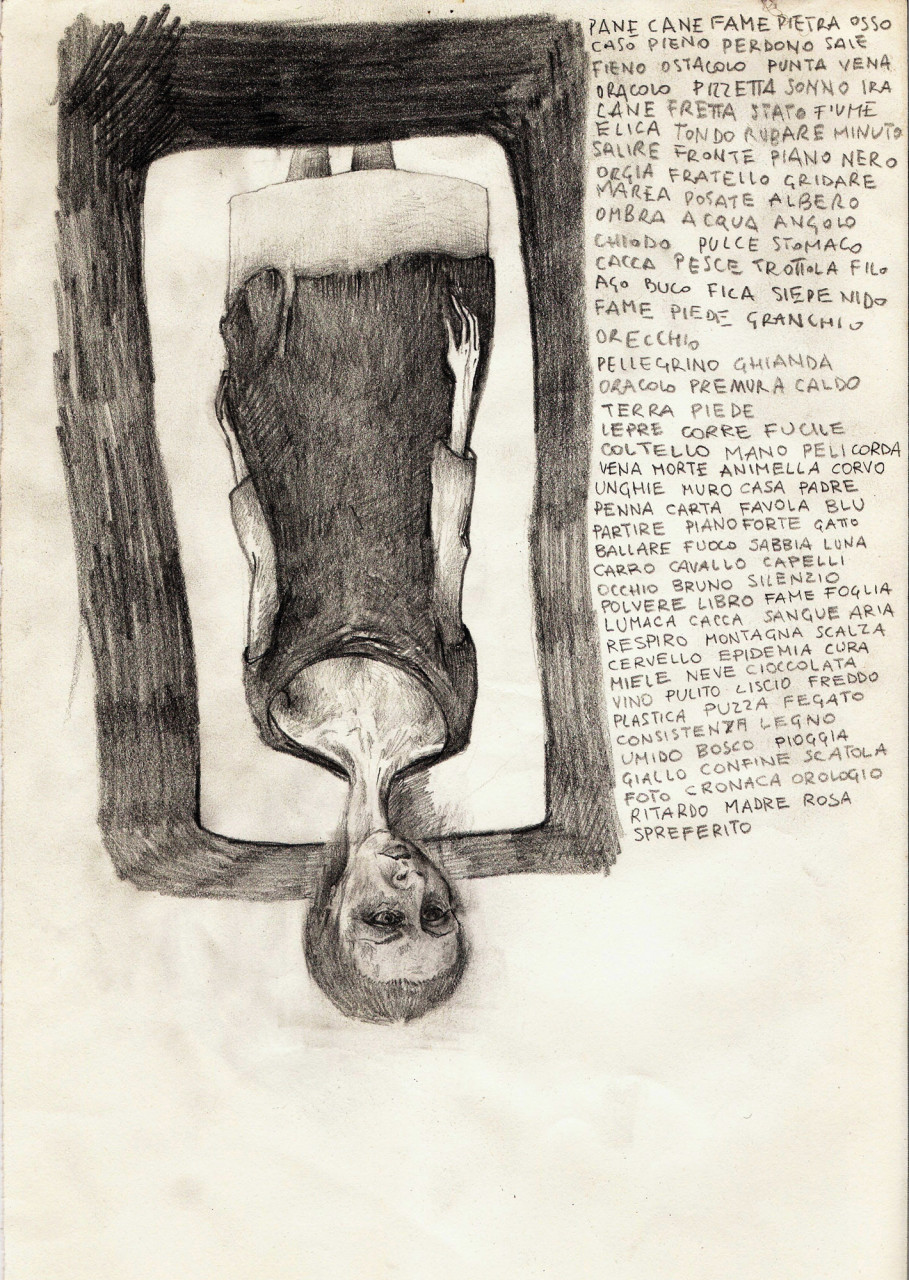 PANE CANE FAME PIETRA OSSO
CASO PIENO PERDONO SALE
FIENO OSTACOLO PUNTA VENA
ORACOLO PIZZETTA SONNO IRA
LANE FRETTA STATO FIUME
ELICA TONDO RUBARE MINUTO
SALIRE FRONTE PIANO NERO
ORGIA FRATELLO GRIDARE
MAREA POSATE ALBERO
OMBRA ACQUA ANGOLO
CHIODO PULCE STOMACO
CACCA PESCE TROTTOLA FILO
AGO BUCO FICA SIEPE NIDO
FAME PIEDE GRANCHIO
ORECCHIO
PELLEGRINO GHIANDA
ORACOLO PREMURA CALDO
TERRA PIEDE
LEPRE CORRE FUCILE
COLTELLO MANO PELI CORDA
VENA MORTE ANIMELLA CORVO
UNGHIE MURO CASA PADRE
PENNA CARTA FAVOLA BLU
PARTIRE PIANOFORTE GATTO
BALLARE FUOCO SABBIA LUNA
CARRO CAVALLO CAPELLI
OCCHIO BRUNO SILENZIO
POLVERE LIBRO FAME FOGLIA
LUMACA CACCA SANGUE ARIA
RESPIRO MONTAGNA SCALZA
CERVELLO EPIDEMIA CURA
MIELE NEVE CIOCCOLATA
VINO PULITO LISCIO FREDDO
PLASTICA PUZZA FEGATO
CONSISTENZA LEGNO
UMIDO BOSCO PIOGGIA
GIALLO CONFINE SCATOLA
FOTO CRONACA OROLOGIO
RITARDO MADRE ROSA
SPREFERITO